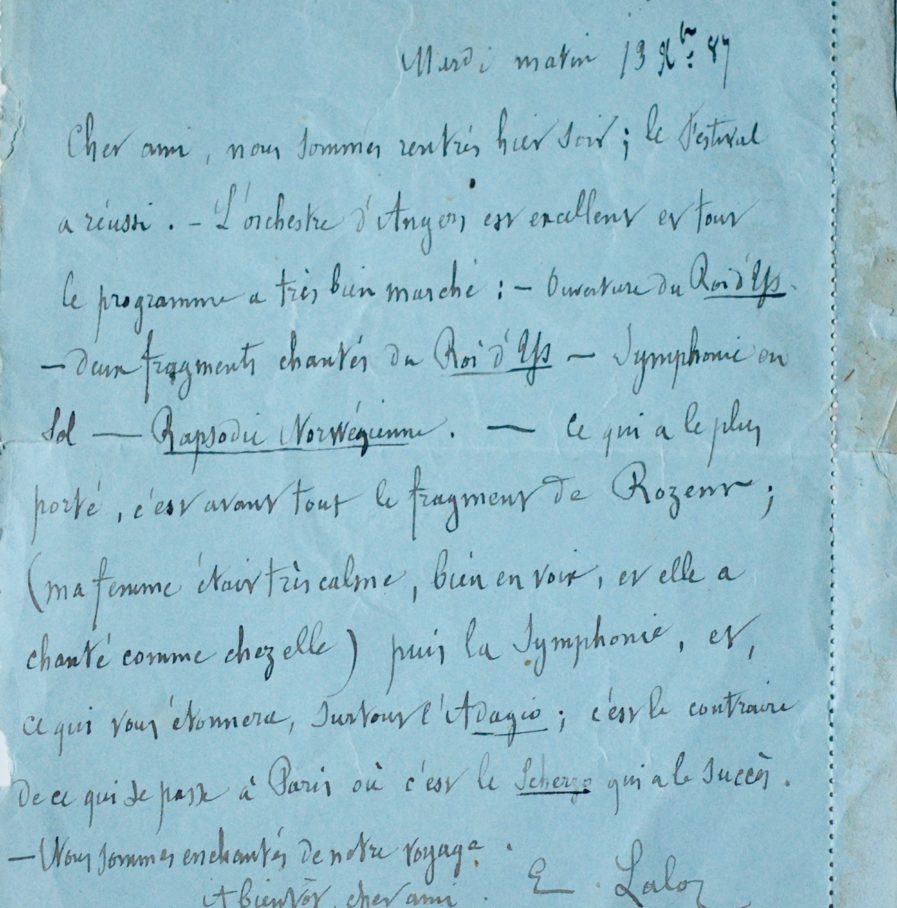 Mardi matin 13 Xbre 87
Cher ami, nous sommes rentrés hier soir ; le Festival
a réussi. – L'orchestre d'Angers est excellent et tout
le programme a très bien marché : – Ouverture du Roi d'Ys.
– deux fragments chantés du Roi d'Ys – Symphonie en
Sol — Rapsodie Norwégienne. — Ce qui a le plus
porté, c'est avant tout le fragment de Rozenn ;
(ma femme était très calme, bien en voix, et elle a
chanté comme chez elle) puis la Symphonie, et,
ce qui vous étonnera, surtout l'Adagio ; c'est le contraire
de ce qui se passe à Paris où c'est le Scherzo qui a le succès.
– Nous sommes enchantés de notre voyage.
A bientôt, cher ami. E. Lalo